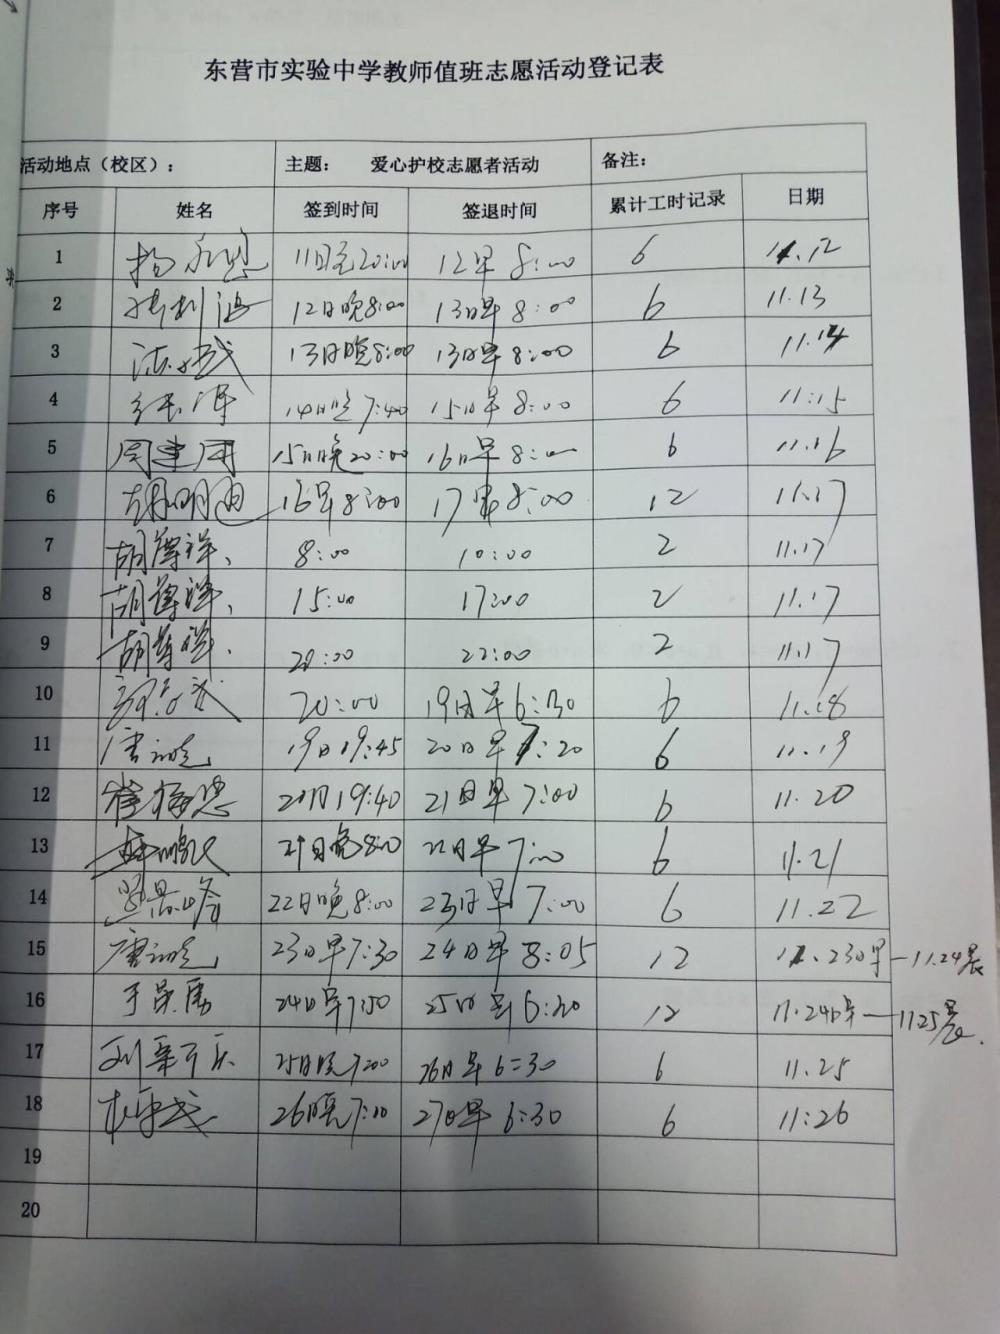 东营市实验中学教师值班志愿活动登记表
活动地点（校区）： 主题： 爱心护校志愿者活动 备注：
序号 姓名 签到时间 签退时间 累计工时记录 日期
1 11日至20:00 12早8:00 6 11.12
2 12日晚8:00 13日早8:00 6 11.13
3 13日晚8:00 13日早8:00 6 11.14
4 14日晚7:40 15日早8:00 6 11.15
5 周建国 15日晚20:00 16日早8:00 6 11.16
6 胡明迪 16早8:00 17早8:00 12 11.17
7 胡尊祥、 8:00 10:00 2 11.17
8 胡尊祥、 15:00 17:00 2 11.17
9 胡尊祥. 20:00 22:00 2 11.17
10 20:00 19日早6:30 6 11.18
11 19日19:45 20日早7:20 6 11.19
12 20日19:40 21日早7:00 6 11.20
13 21日晚8:00 22日早7:00 6 11.21
14 22日晚8:00 23日早7:00 6 11.22
15 23日早7:30 24日早8:05 12 11.23日早—11.24晨
16 于荣勇 24日早7:50 25日早6:30 12 11.24日早—11.25晨.
17 25日晚7:00 26日早6:30 6 11.25
18 26日晚7:10 27日早6:30 6 11:26
19
20